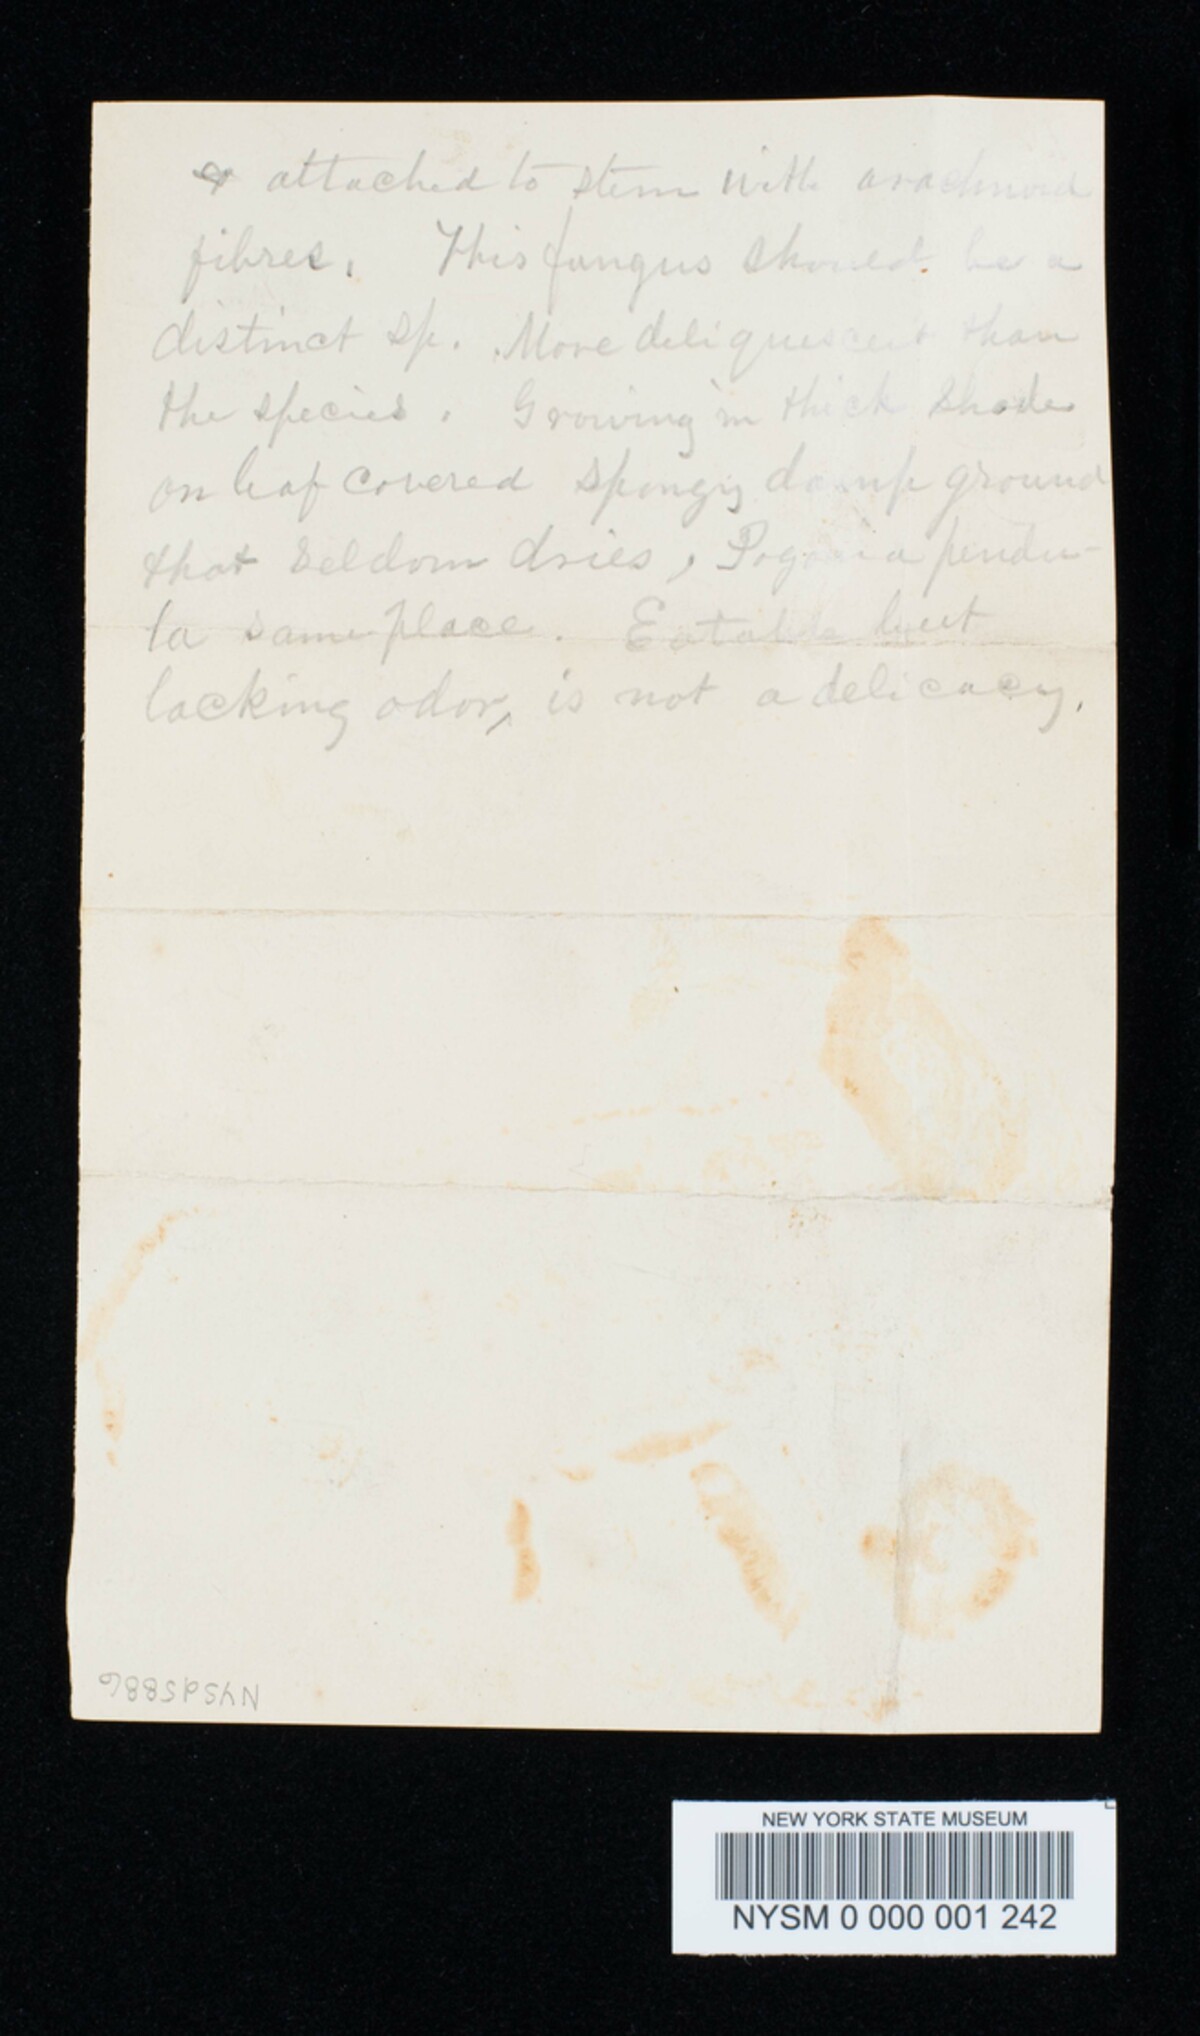 & attached to stem with arachnoid
fibres. This fungus should be a
distinct sp. More deliquescent than
the species. Growing in thick shade
on leaf covered spongy damp ground
that seldom dries, Pogonia pendu-
la same place. Eatable but
lacking odor, is not a delicacy.
NYSd5886
NEW YORK STATE MUSEUM
NYSM 0 000 001 242